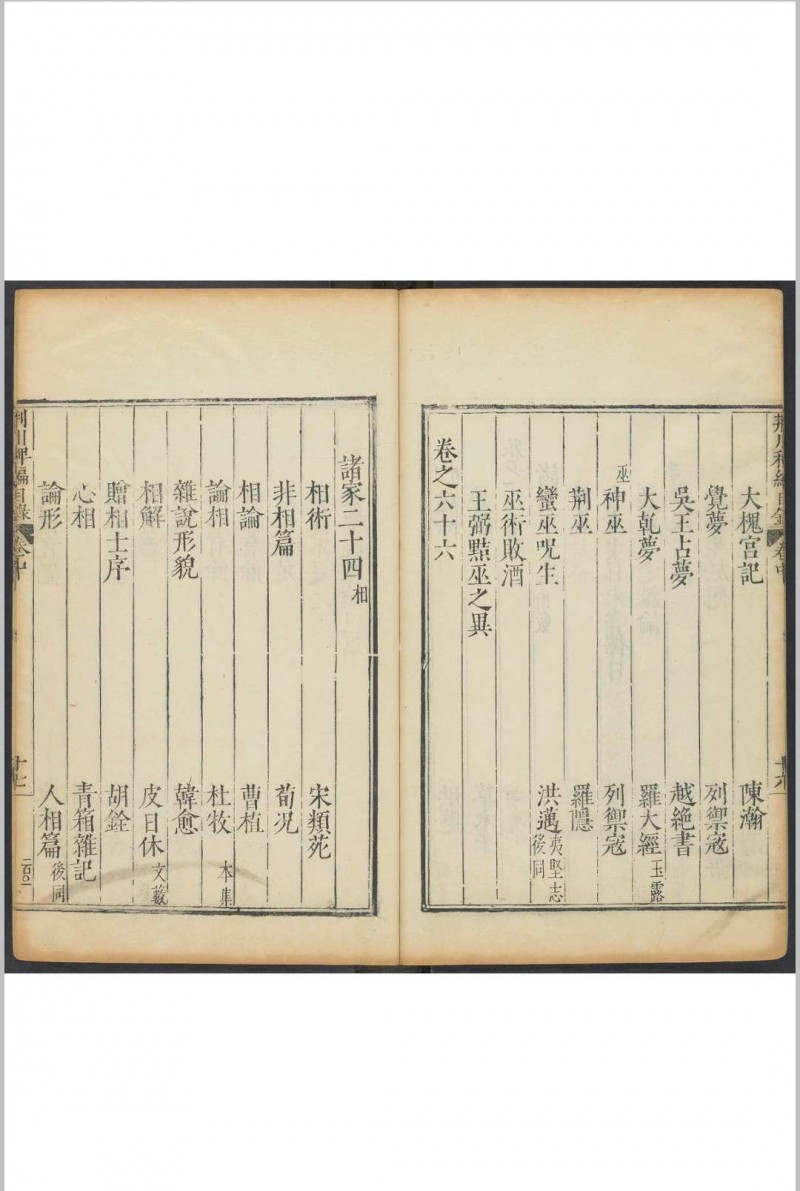 荆川稗編目錄 卷中 十六
大槐宫記 陳瀚
覺夢 列禦寇
吳王占夢 越絶書
大乾夢 羅大經 玉露
巫 神巫 列禦寇
荆巫 羅隱
蠻巫呪生 洪邁 夷堅志 後同
巫術敗酒
王弼㸃巫之異
卷之六十六
諸家二十四 相
相術 宋類苑
非相篇 荀况
相論 曹植
論相 杜牧 本集
雜說形貌 韓愈
相解 皮日休 文藪
贈相士序 胡銓
心相 青箱雜記
論形 人相篇 後同
荆川稗編目錄 卷中 十七